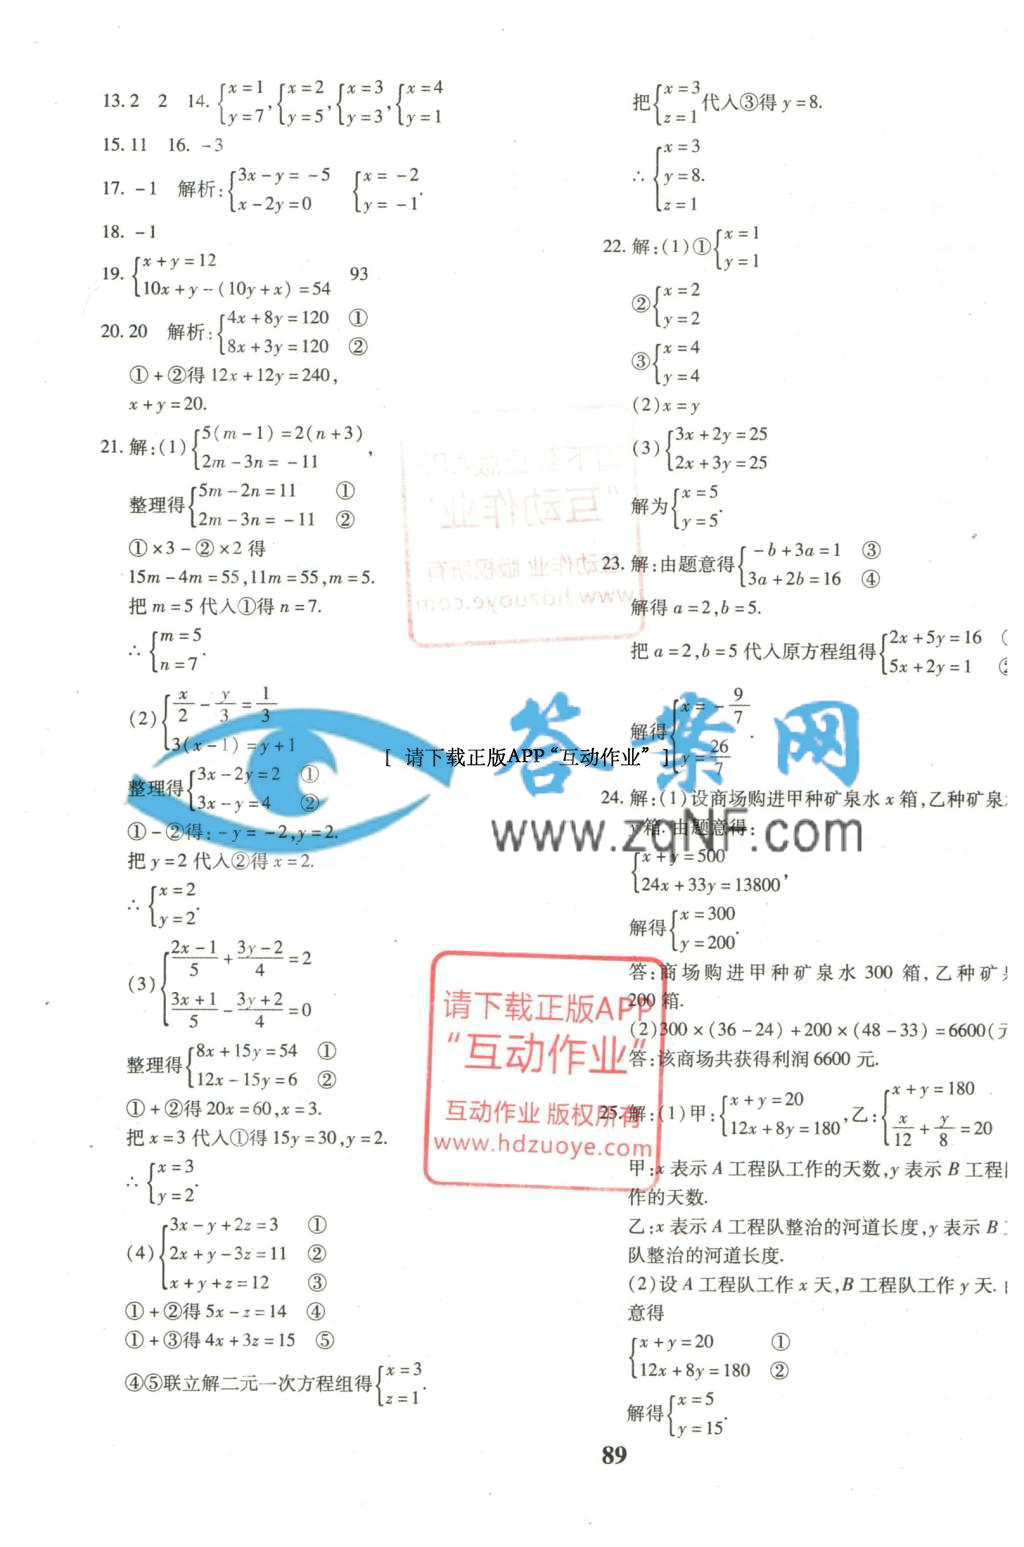 13. 2　2　14. {x=1 y=7, {x=2 y=5, {x=3 y=3, {x=4 y=1
15. 11　16. -3
17. -1　解析:{3x-y=-5 x-2y=0　{x=-2 y=-1.
18. -1
19. {x+y=12 10x+y-(10y+x)=54　93
20. 20　解析:{4x+8y=120 ① 8x+3y=120 ②
①+②得 12x+12y=240,
x+y=20.
21. 解:(1){5(m-1)=2(n+3) 2m-3n=-11,
整理得{5m-2n=11 ① 2m-3n=-11 ②
①×3-②×2 得
15m-4m=55,11m=55,m=5.
把 m=5 代入①得 n=7.
∴{m=5 n=7.
(2){x/2-y/3=1/3 3(x-1)=y+1
整理得{3x-2y=2 ① 3x-y=4 ②
①-②得:-y=-2,y=2.
把 y=2 代入②得 x=2.
∴{x=2 y=2.
(3){(2x-1)/5+(3y-2)/4=2 (3x+1)/5-(3y+2)/4=0
整理得{8x+15y=54 ① 12x-15y=6 ②
①+②得 20x=60,x=3.
把 x=3 代入①得 15y=30,y=2.
∴{x=3 y=2.
(4){3x-y+2z=3 ① 2x+y-3z=11 ② x+y+z=12 ③
①+②得 5x-z=14 ④
①+③得 4x+3z=15 ⑤
④⑤联立解二元一次方程组得{x=3 z=1.
把{x=3 z=1代入③得 y=8.
∴{x=3 y=8. z=1
22. 解:(1)①{x=1 y=1
②{x=2 y=2
③{x=4 y=4
(2)x=y
(3){3x+2y=25 2x+3y=25
解为{x=5 y=5.
23. 解:由题意得{-b+3a=1 ③ 3a+2b=16 ④
解得 a=2,b=5.
把 a=2,b=5 代入原方程组得{2x+5y=16 5x+2y=1 ②
解得{x=-9/7 y=26/7.
24. 解:(1)设商场购进甲种矿泉水 x 箱,乙种矿泉
y 箱.由题意得:
{x+y=500 24x+33y=13800,
解得{x=300 y=200.
答:商场购进甲种矿泉水 300 箱,乙种矿
200 箱.
(2)300×(36-24)+200×(48-33)=6600(
答:该商场共获得利润 6600 元.
25. 解:(1)甲:{x+y=20 12x+8y=180,乙:{x+y=180 x/12+y/8=20
甲:x 表示 A 工程队工作的天数,y 表示 B 工程
作的天数.
乙:x 表示 A 工程队整治的河道长度,y 表示 B
队整治的河道长度.
(2)设 A 工程队工作 x 天,B 工程队工作 y 天.
意得
{x+y=20 ① 12x+8y=180 ②
解得{x=5 y=15.
89
[ 请下载正版APP“互动作业” ]
答案网
www.zqNF.com
请下载正版APP
“互动作业”
互动作业 版权所有
www.hdzuoye.com